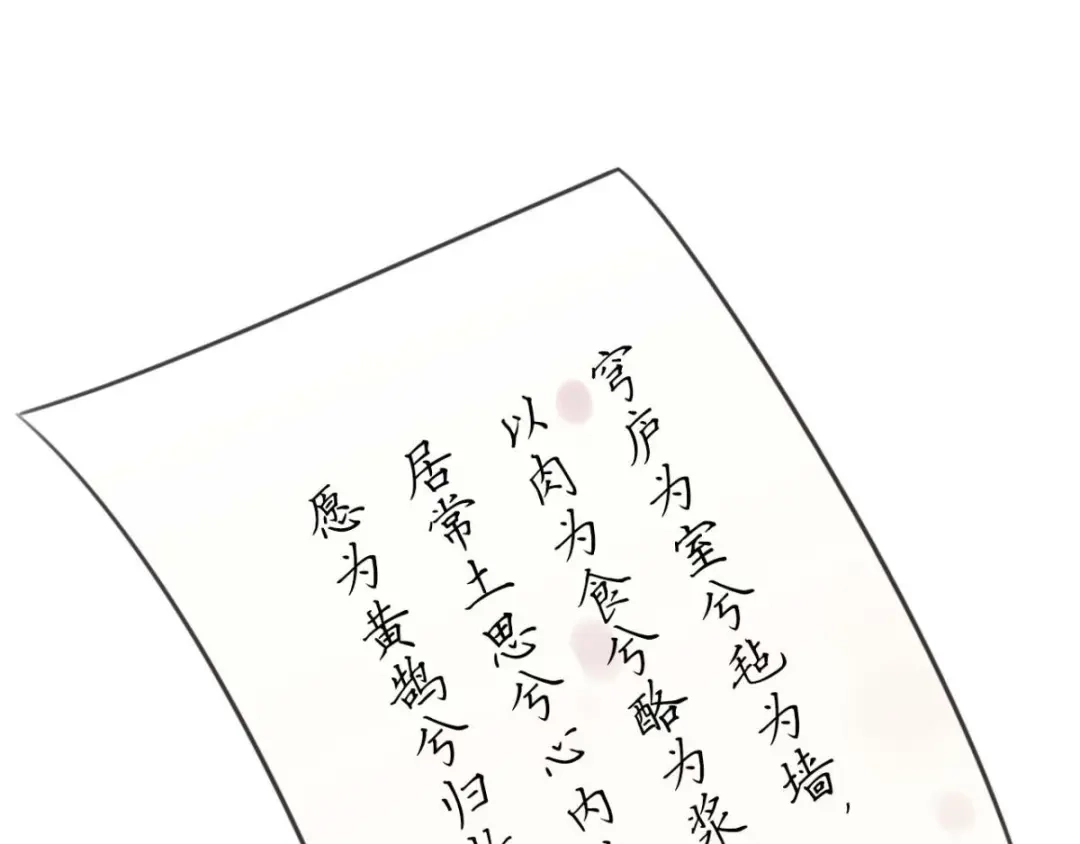 穹庐为室兮毡为墙，
以肉为食兮酪为浆
居常土思兮心内
愿为黄鹄兮归